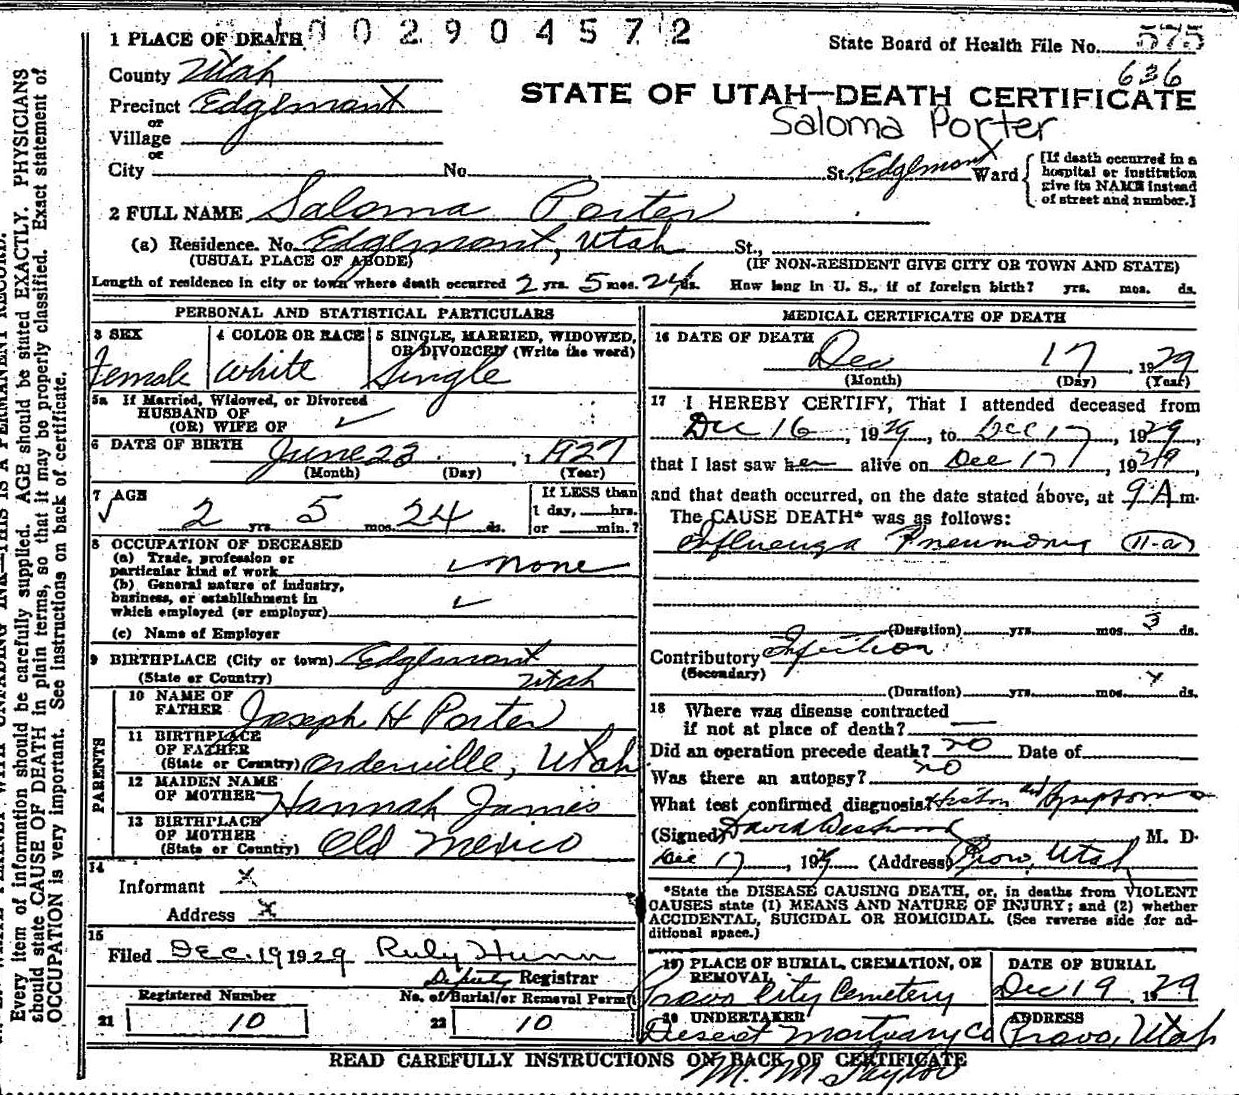 002904572
1 PLACE OF DEATH
State Board of Health File No. 575
636
County Utah
STATE OF UTAH—DEATH CERTIFICATE
Precinct Edglemont
Saloma Porter
or
Village
or
City No. St., Edglemont Ward
[If death occurred in a
hospital or institution
give its NAME instead
of street and number.]
2 FULL NAME Saloma Porter
(a) Residence. No. Edglemont, Utah St.,
(USUAL PLACE OF ABODE) (IF NON-RESIDENT GIVE CITY OR TOWN AND STATE)
Length of residence in city or town where death occurred 2 yrs. 5 mos. 24 ds. How long in U. S., if of foreign birth? yrs. mos. ds.
PERSONAL AND STATISTICAL PARTICULARS
3 SEX
Female
4 COLOR OR RACE
White
5 SINGLE, MARRIED, WIDOWED,
OR DIVORCED (Write the word)
Single
5a If Married, Widowed, or Divorced
HUSBAND OF
(OR) WIFE OF
6 DATE OF BIRTH June 23 1927
(Month) (Day) (Year)
7 AGE
2 yrs. 5 mos. 24 ds.
If LESS than
1 day, hrs.
or min.?
8 OCCUPATION OF DECEASED
(a) Trade, profession or
particular kind of work none
(b) General nature of industry,
business, or establishment in
which employed (or employer)
(c) Name of Employer
9 BIRTHPLACE (City or town) Edglemont
(State or Country) Utah
PARENTS
10 NAME OF
FATHER Joseph H Porter
11 BIRTHPLACE
OF FATHER
(State or Country) Orderville, Utah
12 MAIDEN NAME
OF MOTHER Hannah James
13 BIRTHPLACE
OF MOTHER
(State or Country) Old Mexico
14
Informant x
Address x
15
Filed Dec. 19 1929
Deputy Registrar
Registered Number
21 10
No. of Burial or Removal Permit
22 10
MEDICAL CERTIFICATE OF DEATH
16 DATE OF DEATH
Dec 17, 1929
(Month) (Day) (Year)
17 I HEREBY CERTIFY, That I attended deceased from
Dec 16, 1929, to Dec 17, 1929,
that I last saw her alive on Dec 17, 1929,
and that death occurred, on the date stated above, at 9 A m.
The CAUSE DEATH* was as follows:
Influenza Pneumony 11-a
(Duration) yrs. mos. 3 ds.
Contributory Infection
(Secondary)
(Duration) yrs. mos. ds.
18 Where was disease contracted
if not at place of death?
Did an operation precede death? no Date of
Was there an autopsy? no
What test confirmed diagnosis? and Symptoms
(Signed) David Westwood M. D.
Dec 17, 1929 (Address) Provo, Utah
*State the DISEASE CAUSING DEATH, or, in deaths from VIOLENT
CAUSES state (1) MEANS AND NATURE OF INJURY; and (2) whether
ACCIDENTAL, SUICIDAL OR HOMICIDAL. (See reverse side for ad-
ditional space.)
19 PLACE OF BURIAL, CREMATION, OR
REMOVAL
Provo City Cemetery
DATE OF BURIAL
Dec 19, 1929
20 UNDERTAKER
Deseret Mortuary Co
ADDRESS
Provo, Utah
READ CAREFULLY INSTRUCTIONS ON BACK OF CERTIFICATE
M. M. Taylor
Every item of information should be carefully supplied. AGE should be stated EXACTLY. PHYSICIANS
should state CAUSE OF DEATH in plain terms, so that it may be properly classified. Exact statement of
OCCUPATION is very important. See instructions on back of certificate.